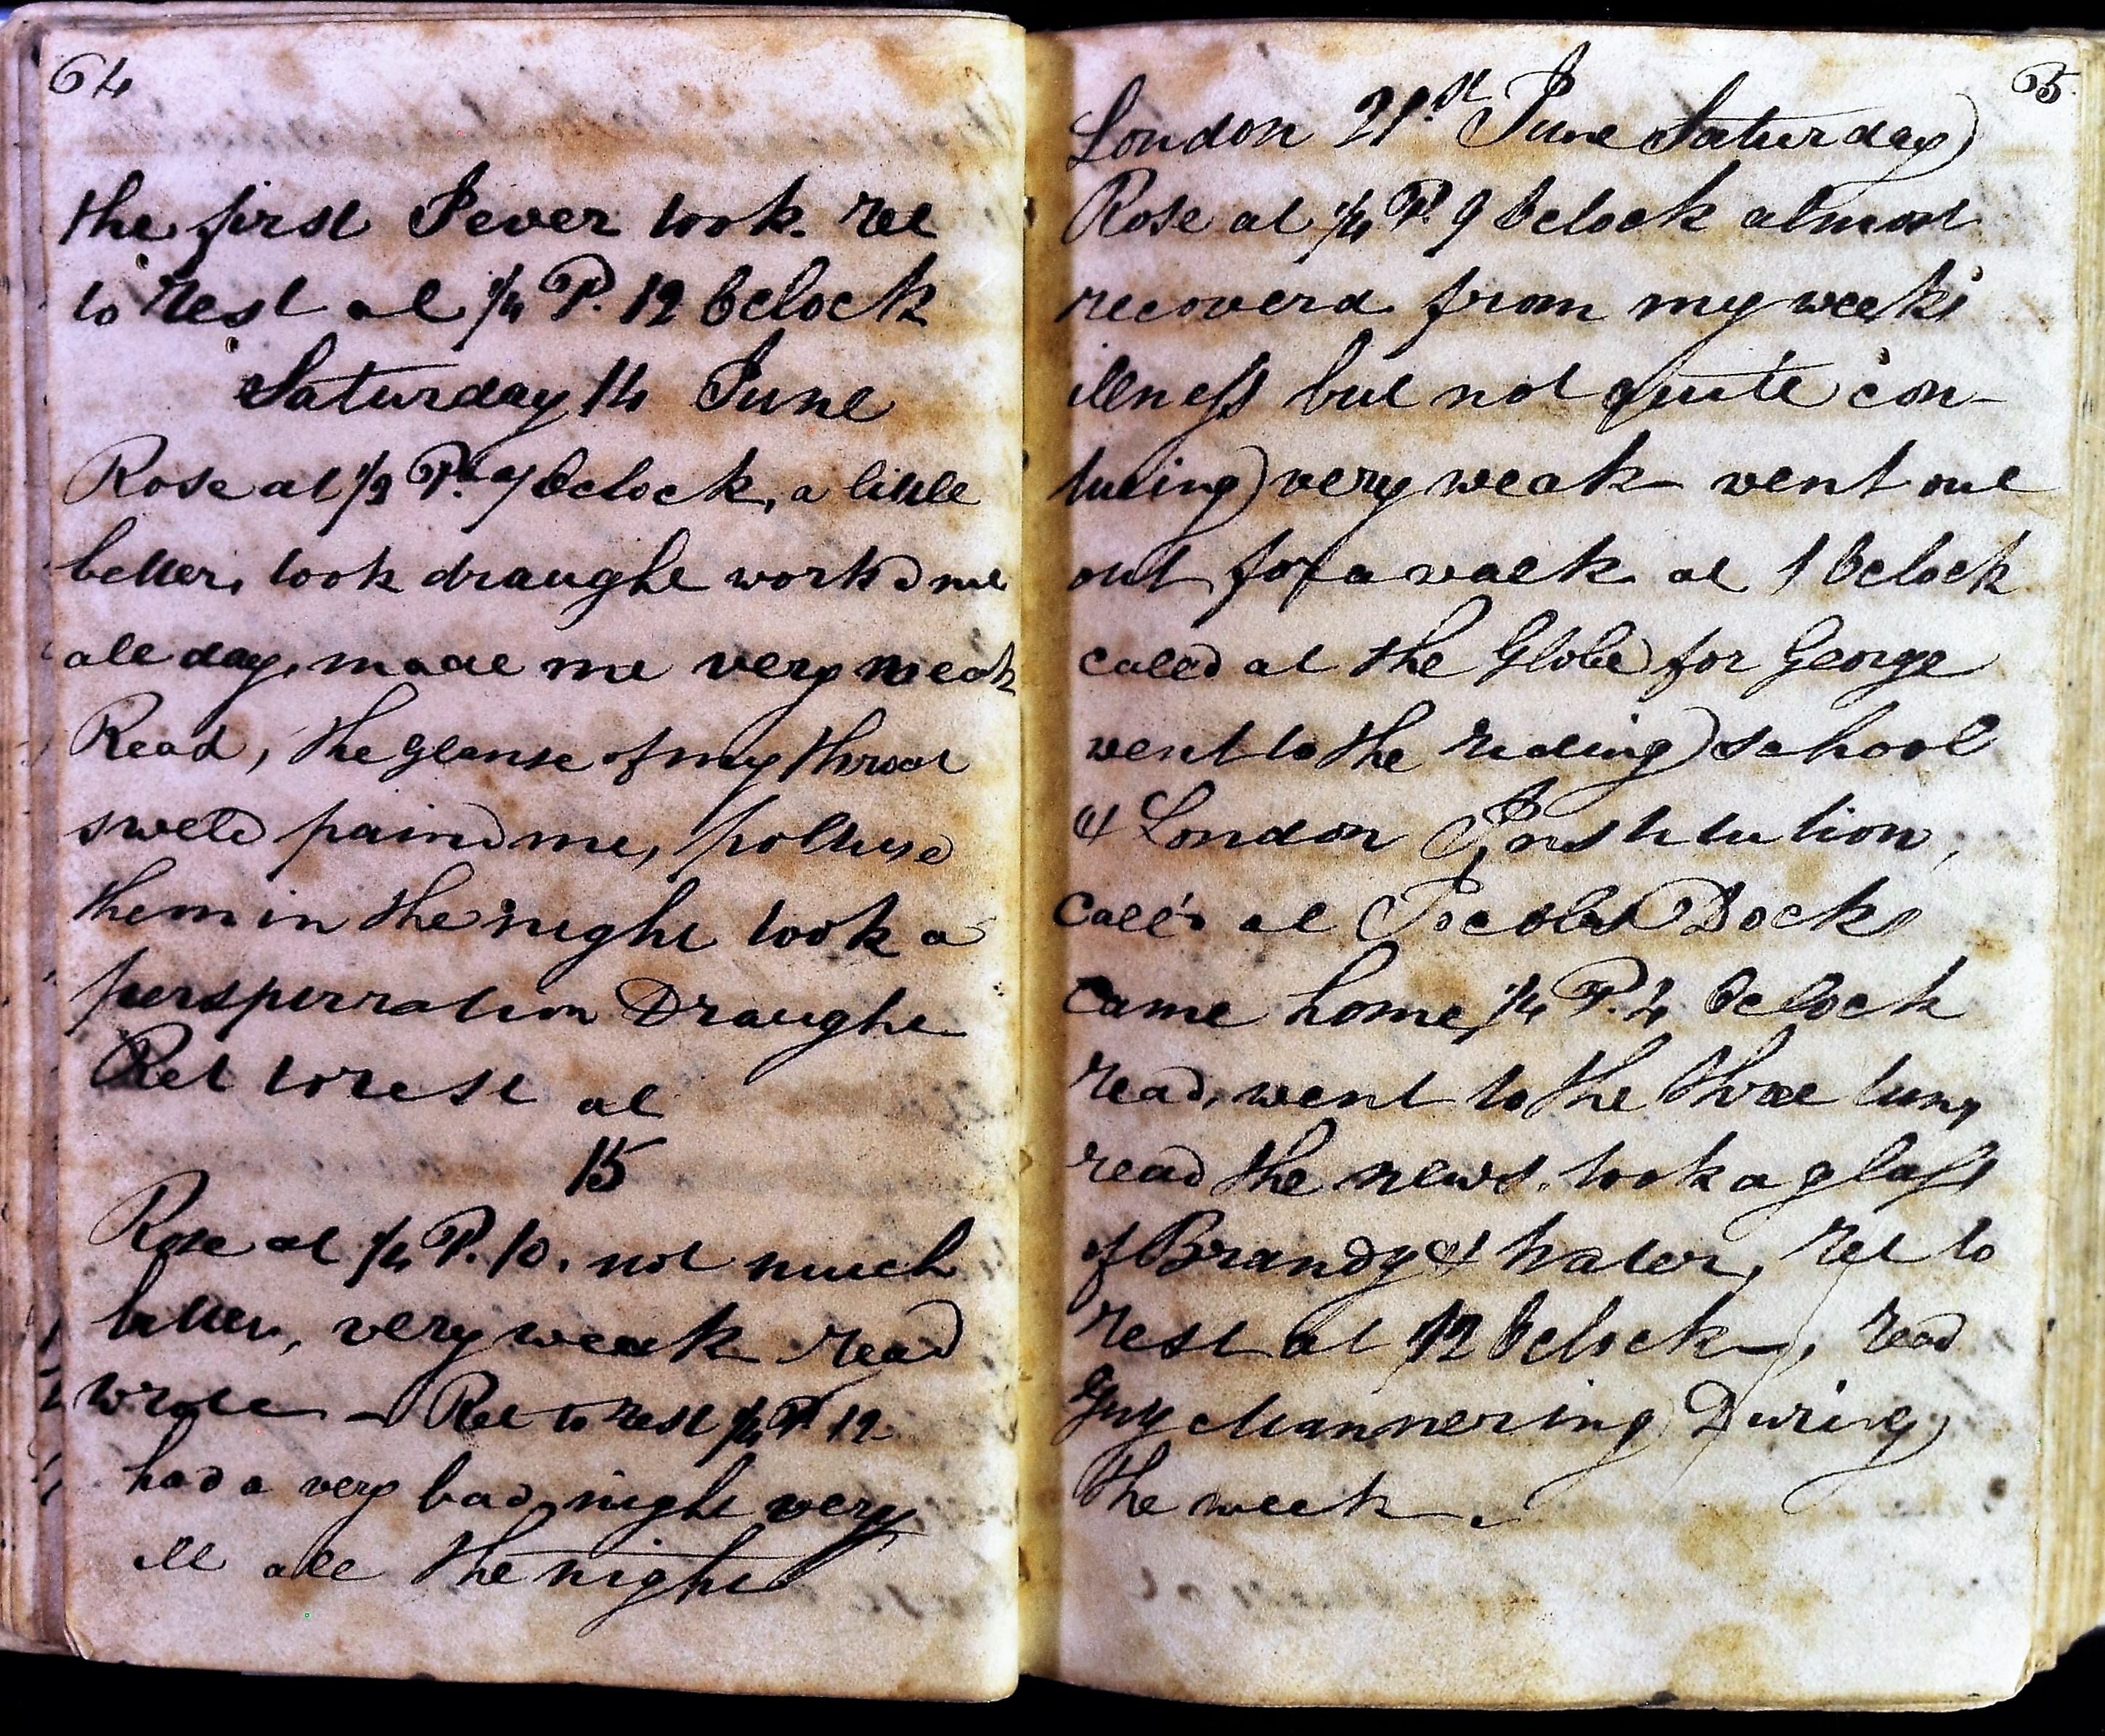 64
the first Fever took. ret
to rest at 1/4 P. 12 Oclock
Saturday 14 June
Rose at 1/2 P. 9 Oclock, a little
better, took draught workd me
all day, made me very weak
Read, the glanse of my throat
sweld paind me, poltised
them in the night took a
perspirration Draught
Ret to rest at
15
Rose at 1/4 P. 10. not much
better, very weak read
wrote — Ret to rest 1/4 P. 12
had a very bad night very
ill all the night
65
London 21st June Saturday
Rose at 1/4 P. 9 Oclock almost
recoverd from my weeks
illness but not quite con-
tuing very weak went out
out for a walk at 1 Oclock
calld at the Globe for George
went to the riding school
& London Institution,
Call'd at Jacobs Docks
Came home 1/4 P. 4 Oclock
read, went to the three tuns
read the news. took a glass
of Brandy & Water, ret to
rest at 12 Oclock —, read
Guy Mannering During
the week —.